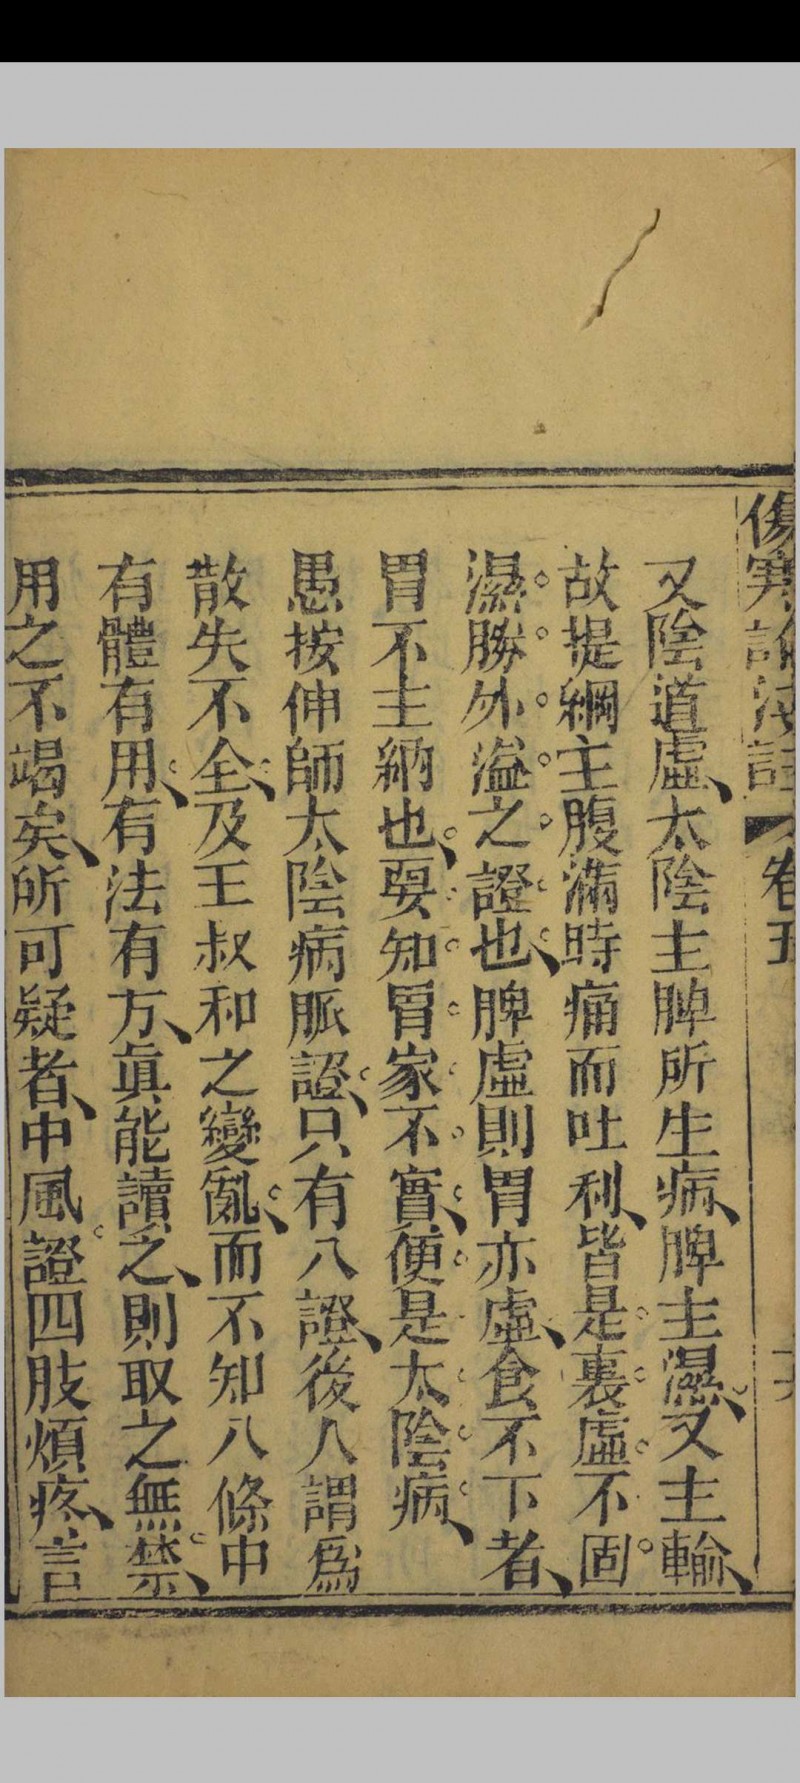 傷寒論注 卷五
又陰道虛、太陰主脾所生病、脾主濕、又主輸、
故提綱主腹滿時痛而吐利、皆是裏虛不固
濕勝外溢之證也、脾虛則胃亦虛、食不下者、
胃不主納也、要知胃家不實、便是太陰病、
愚按仲師太陰病脈證、只有八證、後人謂爲
散失不全、及王叔和之變亂、而不知八條中
有體有用、有法有方、眞能讀之、則取之無禁、
用之不竭矣、所可疑者、中風證四肢煩疼、言